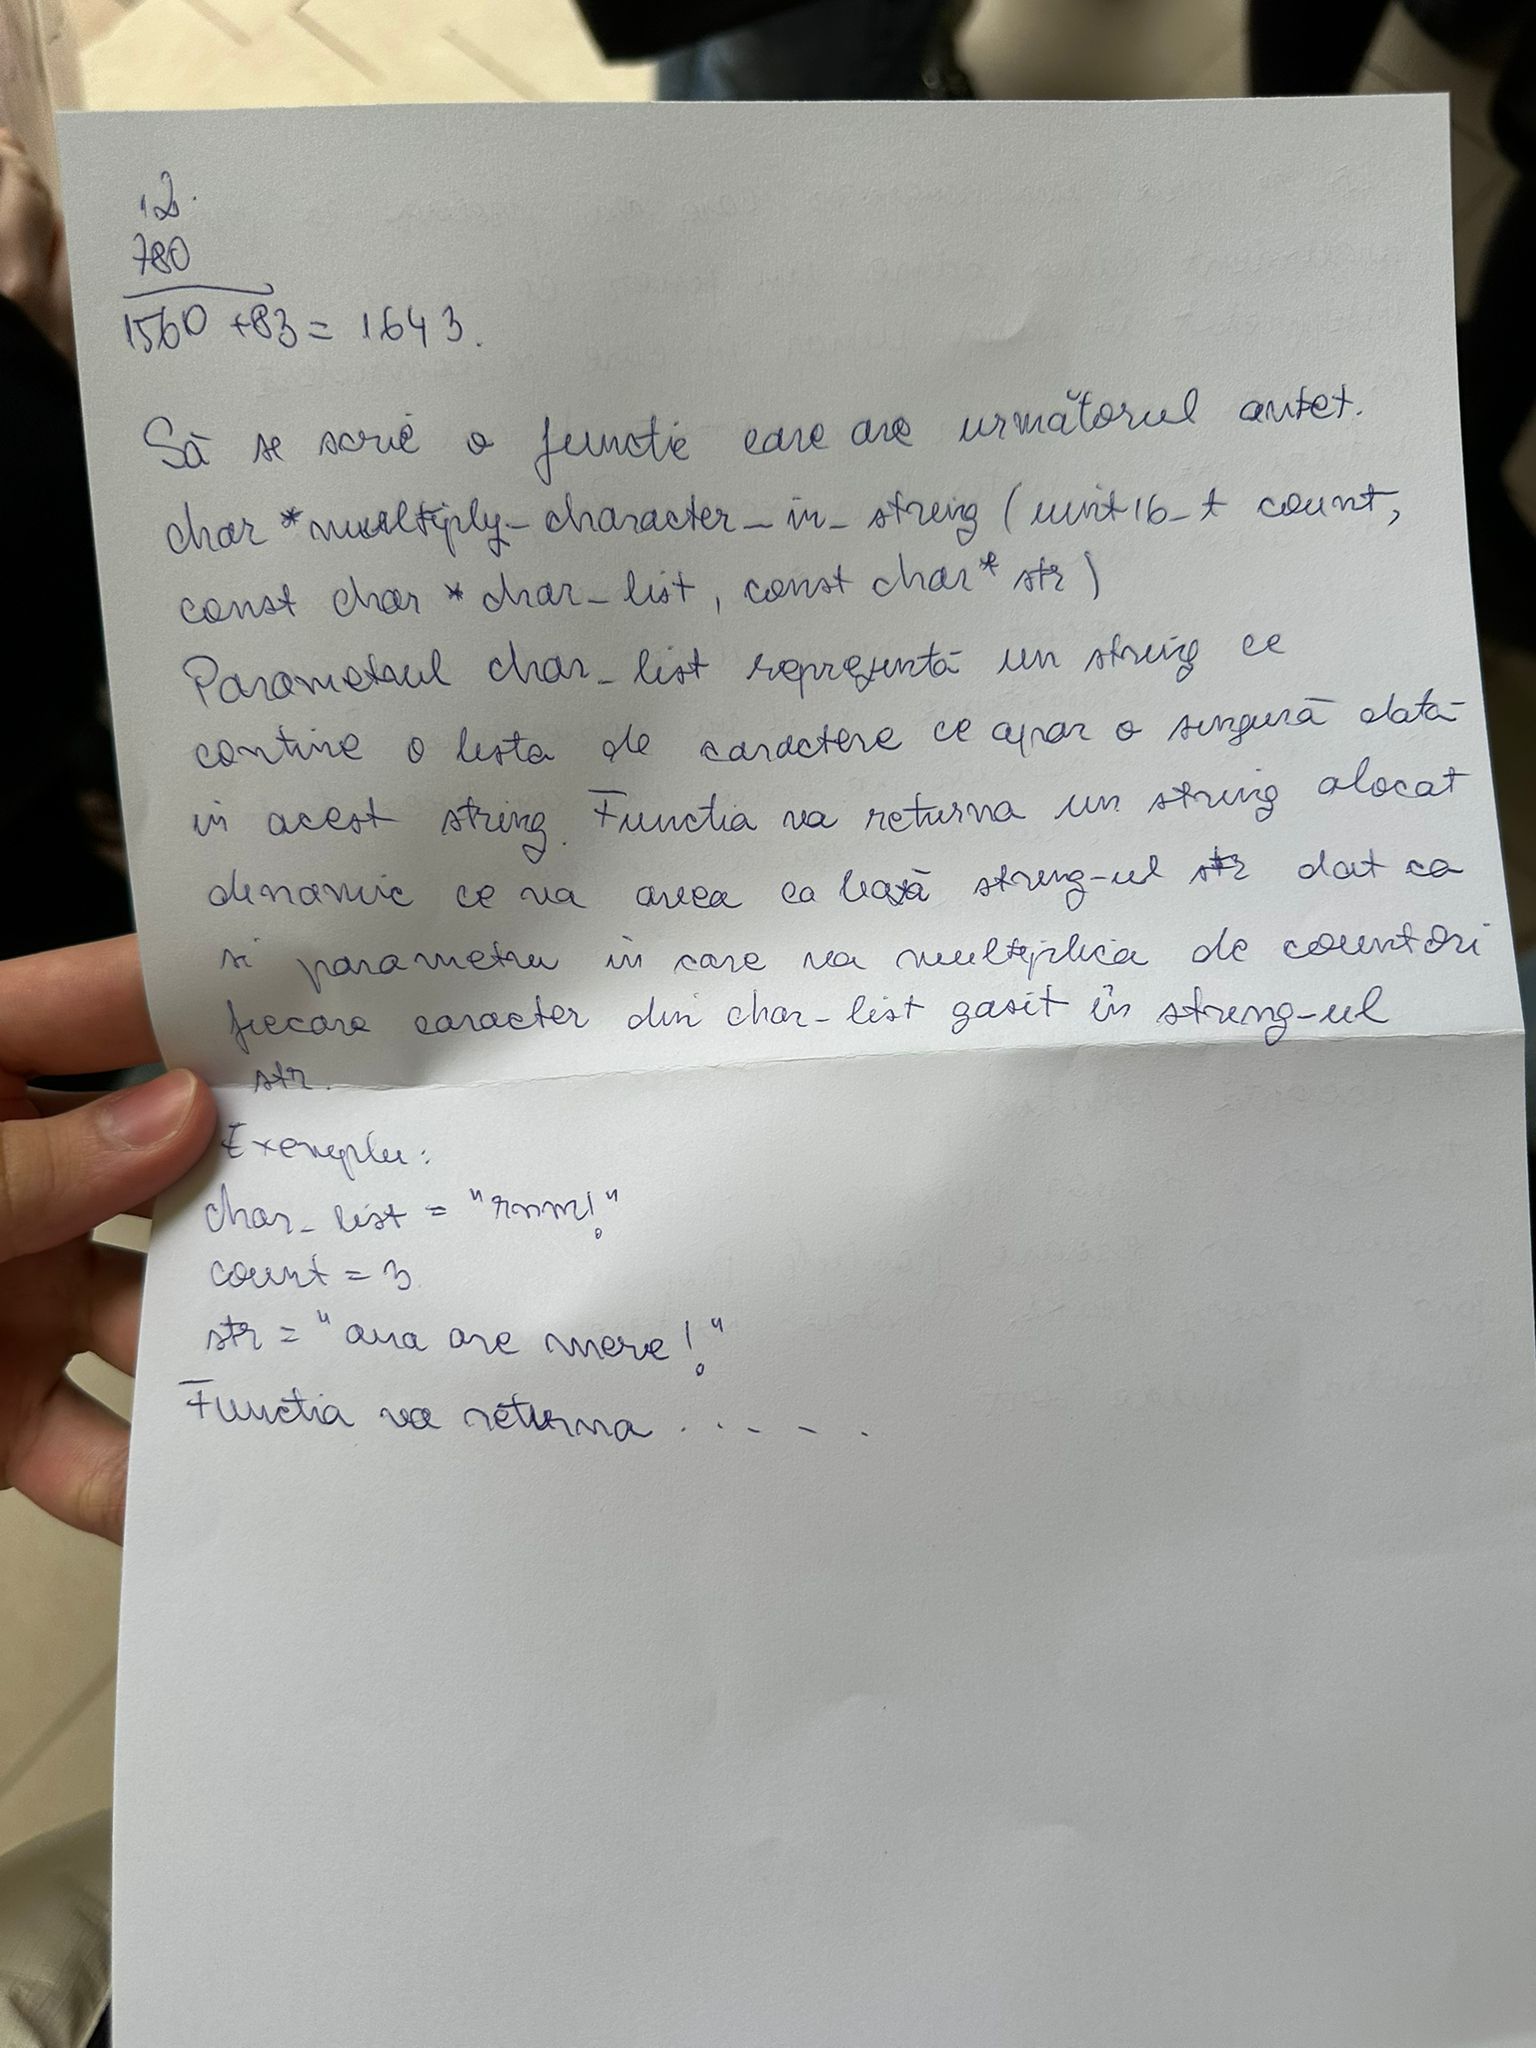 12.
780
1560 +83 = 1643.
Să se scrie o functie care are următorul antet.
char *multiply_character_in_string (uint16_t count,
const char * char_list, const char* str)
Parametrul char_list reprezintă un string ce
contine o lista de caractere ce apar o singură dată
in acest string. Functia va returna un string alocat
dinamic ce va avea ca bază string-ul str dat ca
si parametru in care va multiplica de count ori
fiecare caracter din char_list gasit în string-ul
str.
Exemplu:
char_list = "rnm!"
count = 3
str = "ana are mere!"
Functia va returna . . - - .